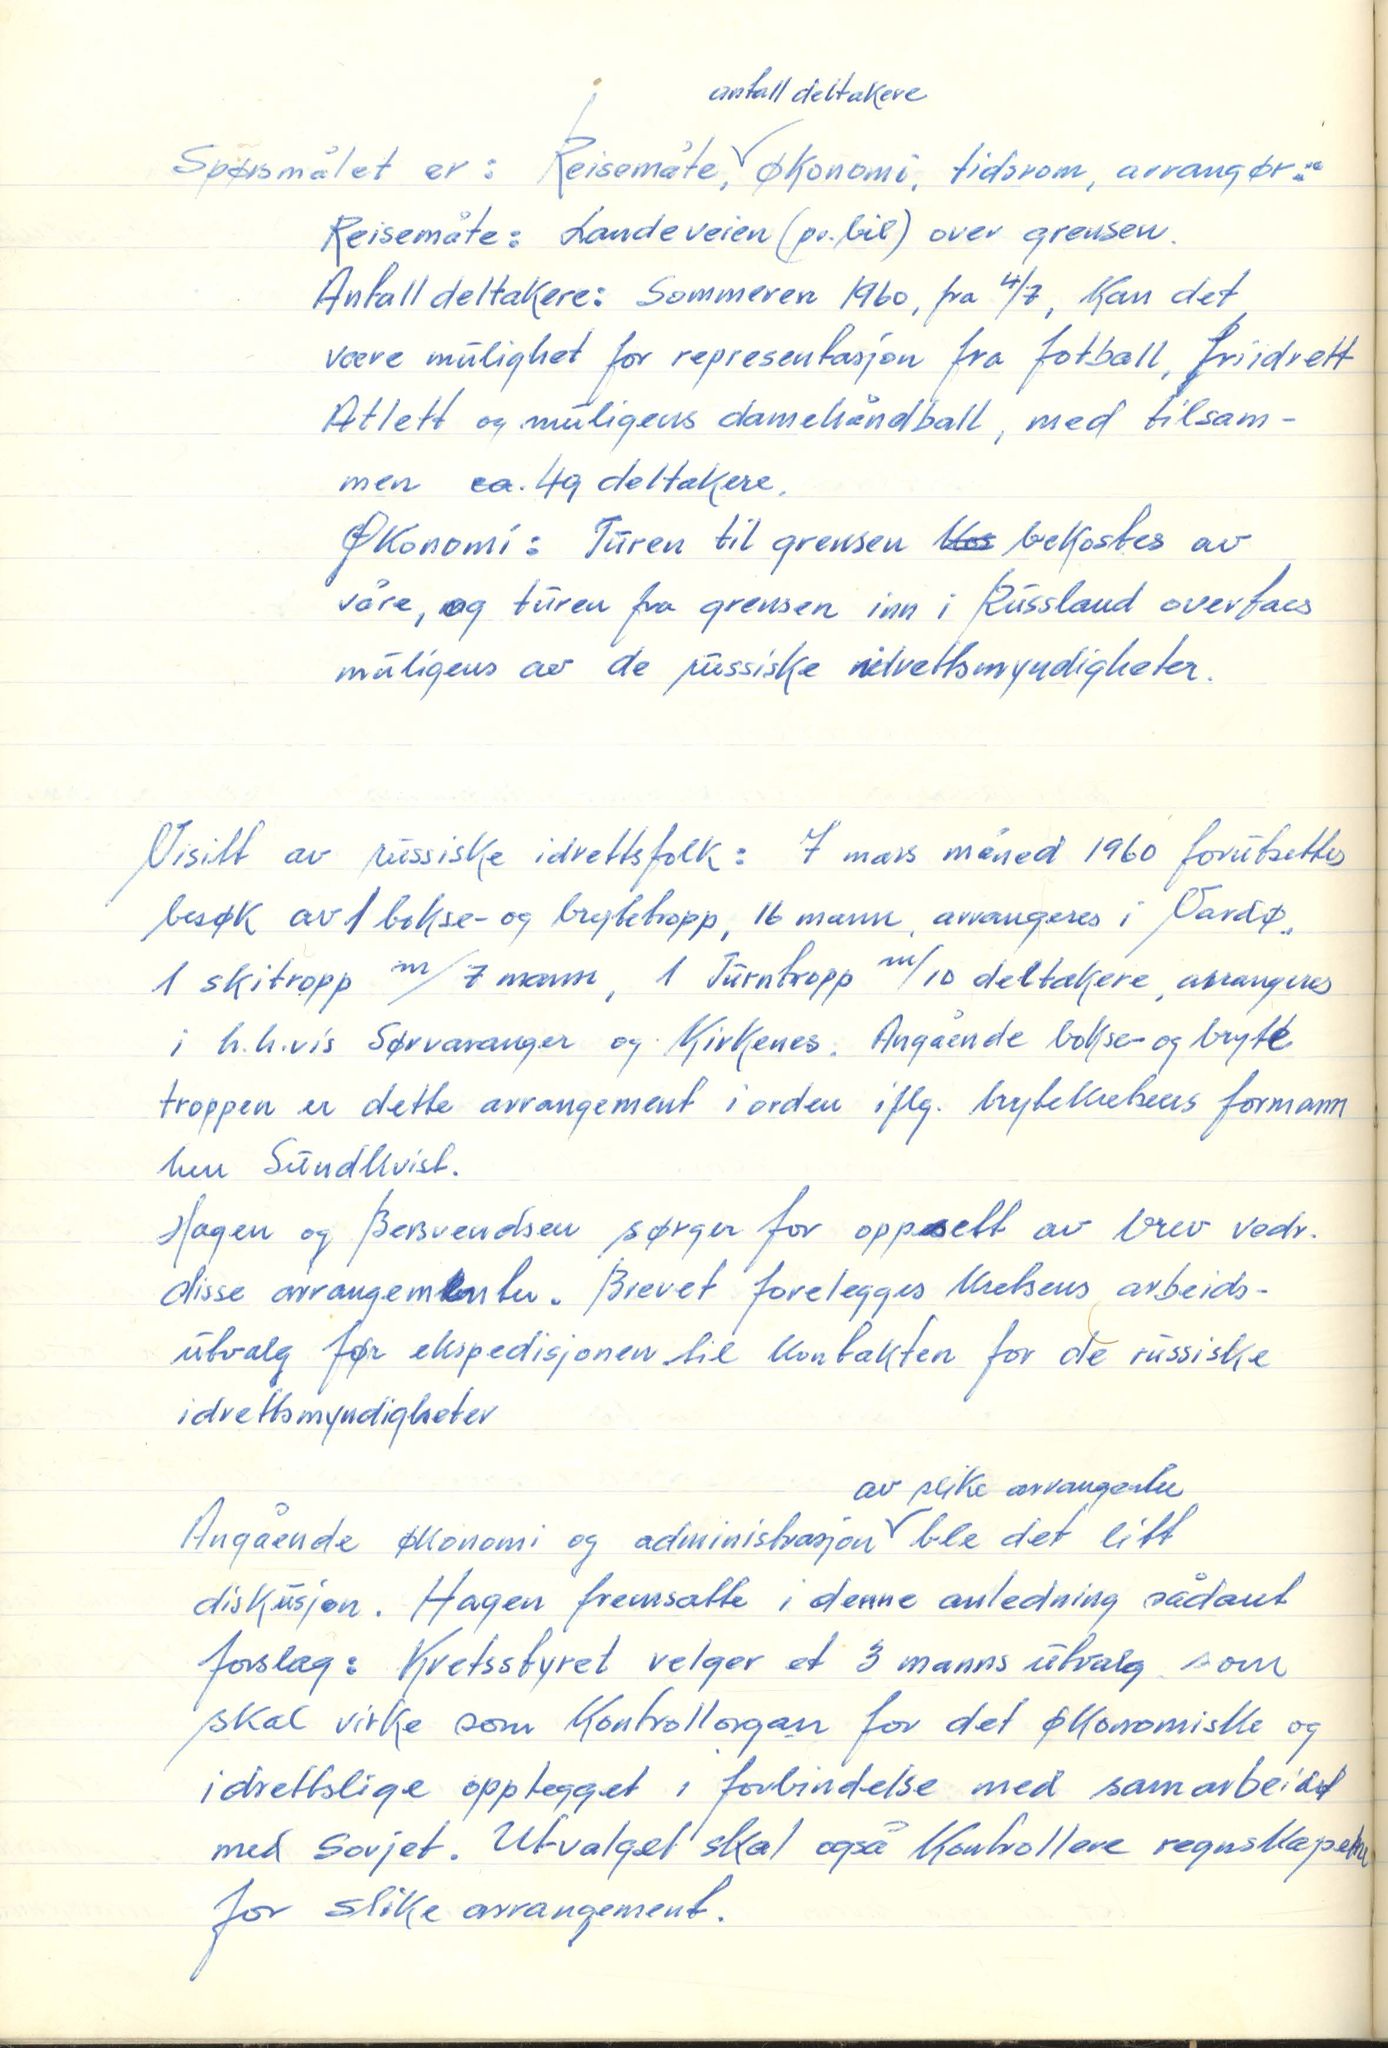 antall deltakere
Spørsmålet er: Reisemåte, økonomi, tidsrom, arrangør:
Reisemåte: Landeveien (pr. bil) over grensen.
Antall deltakere: Sommeren 1960, fra 4/7, kan det
være mulighet for representasjon fra fotball, friidrett
Atlett og muligens damehåndball, med tilsam-
men ca. 49 deltakere.
Økonomi: Turen til grensen bekostes av
våre, og turen fra grensen inn i Russland overtaes
muligens av de russiske idrettsmyndigheter.
Visitt av russiske idrettsfolk: I mars måned 1960 forutsettes
besøk av 1 bokse- og brytetropp, 16 mann, arrangeres i Vardø.
1 skitropp m/7 mann, 1 Turntropp m/10 deltakere, arrangeres
i h.h.vis Sørvaranger og Kirkenes. Angående bokse- og bryte
troppen er dette arrangement i orden iflg. brytekretsens formann
herr Sundkvist.
Hagen og Bersvendsen sørger for oppsett av brev vedr.
disse arrangementer. Brevet forelegges kretsens arbeids-
utvalg før ekspedisjonen til kontakten for de russiske
idrettsmyndigheter
av slike arrangenter
Angående økonomi og administrasjon ble det litt
diskusjon. Hagen fremsatte i denne anledning sådant
forslag: Kretsstyret velger et 3 manns utvalg som
skal virke som kontrollorgan for det økonomiske og
idrettslige opplegget i forbindelse med samarbeidet
med Sovjet. Utvalget skal også kontrollere regnskapene
for slike arrangement.